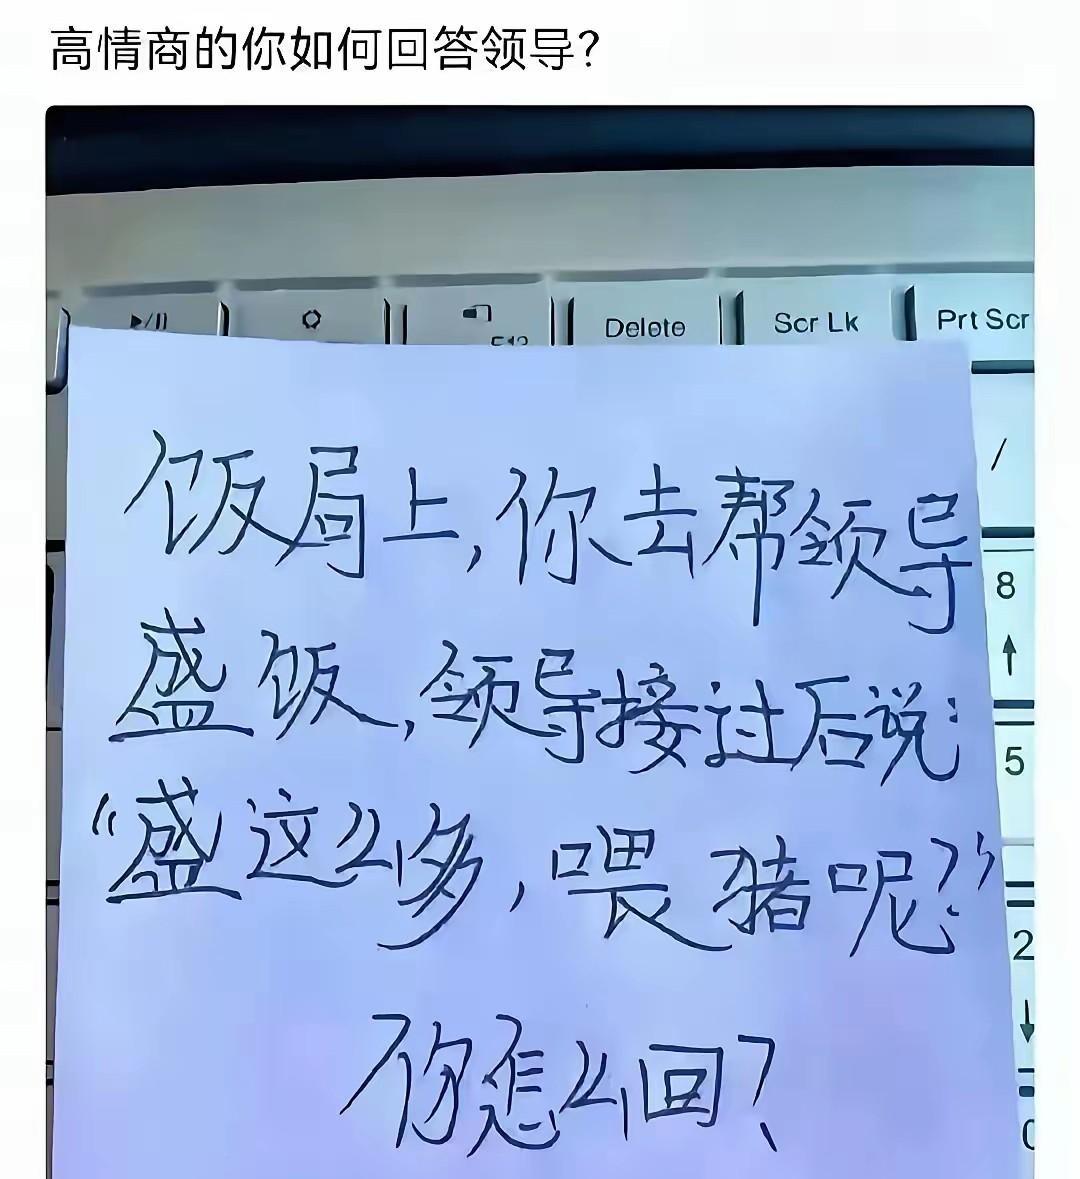 高情商的你如何回答领导?
▶/II
F12
Delete
Scr Lk
Prt Scr
/
饭局上,你去帮领导
8
↑
盛饭,领导接过后说:
5
“盛这么多,喂猪呢?”
2
↓
你怎么回?
0